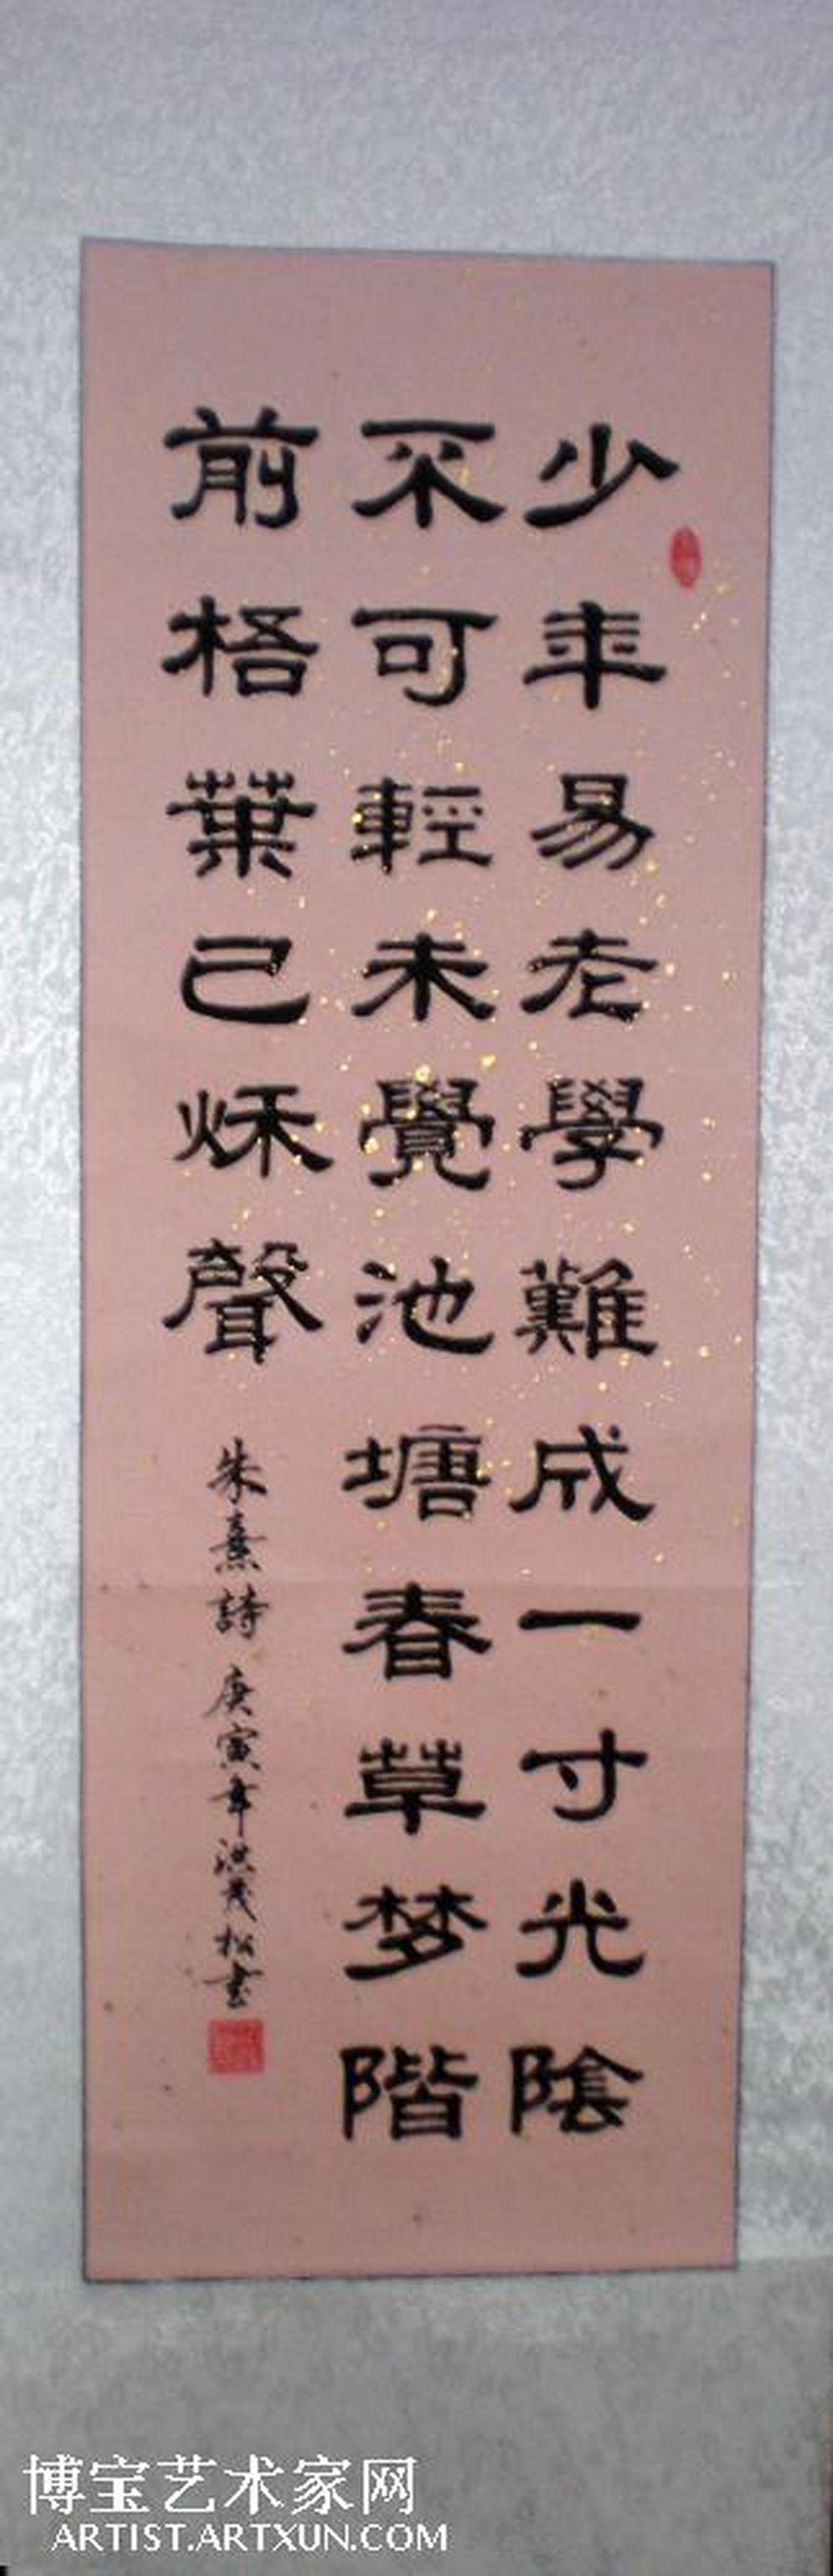 少年易老學難成一寸光陰
不可輕未覺池塘春草梦階
前梧葉已秌聲
朱熹詩 庚寅年洪茂松书
博宝艺术家网
ARTIST.ARTXUN.COM